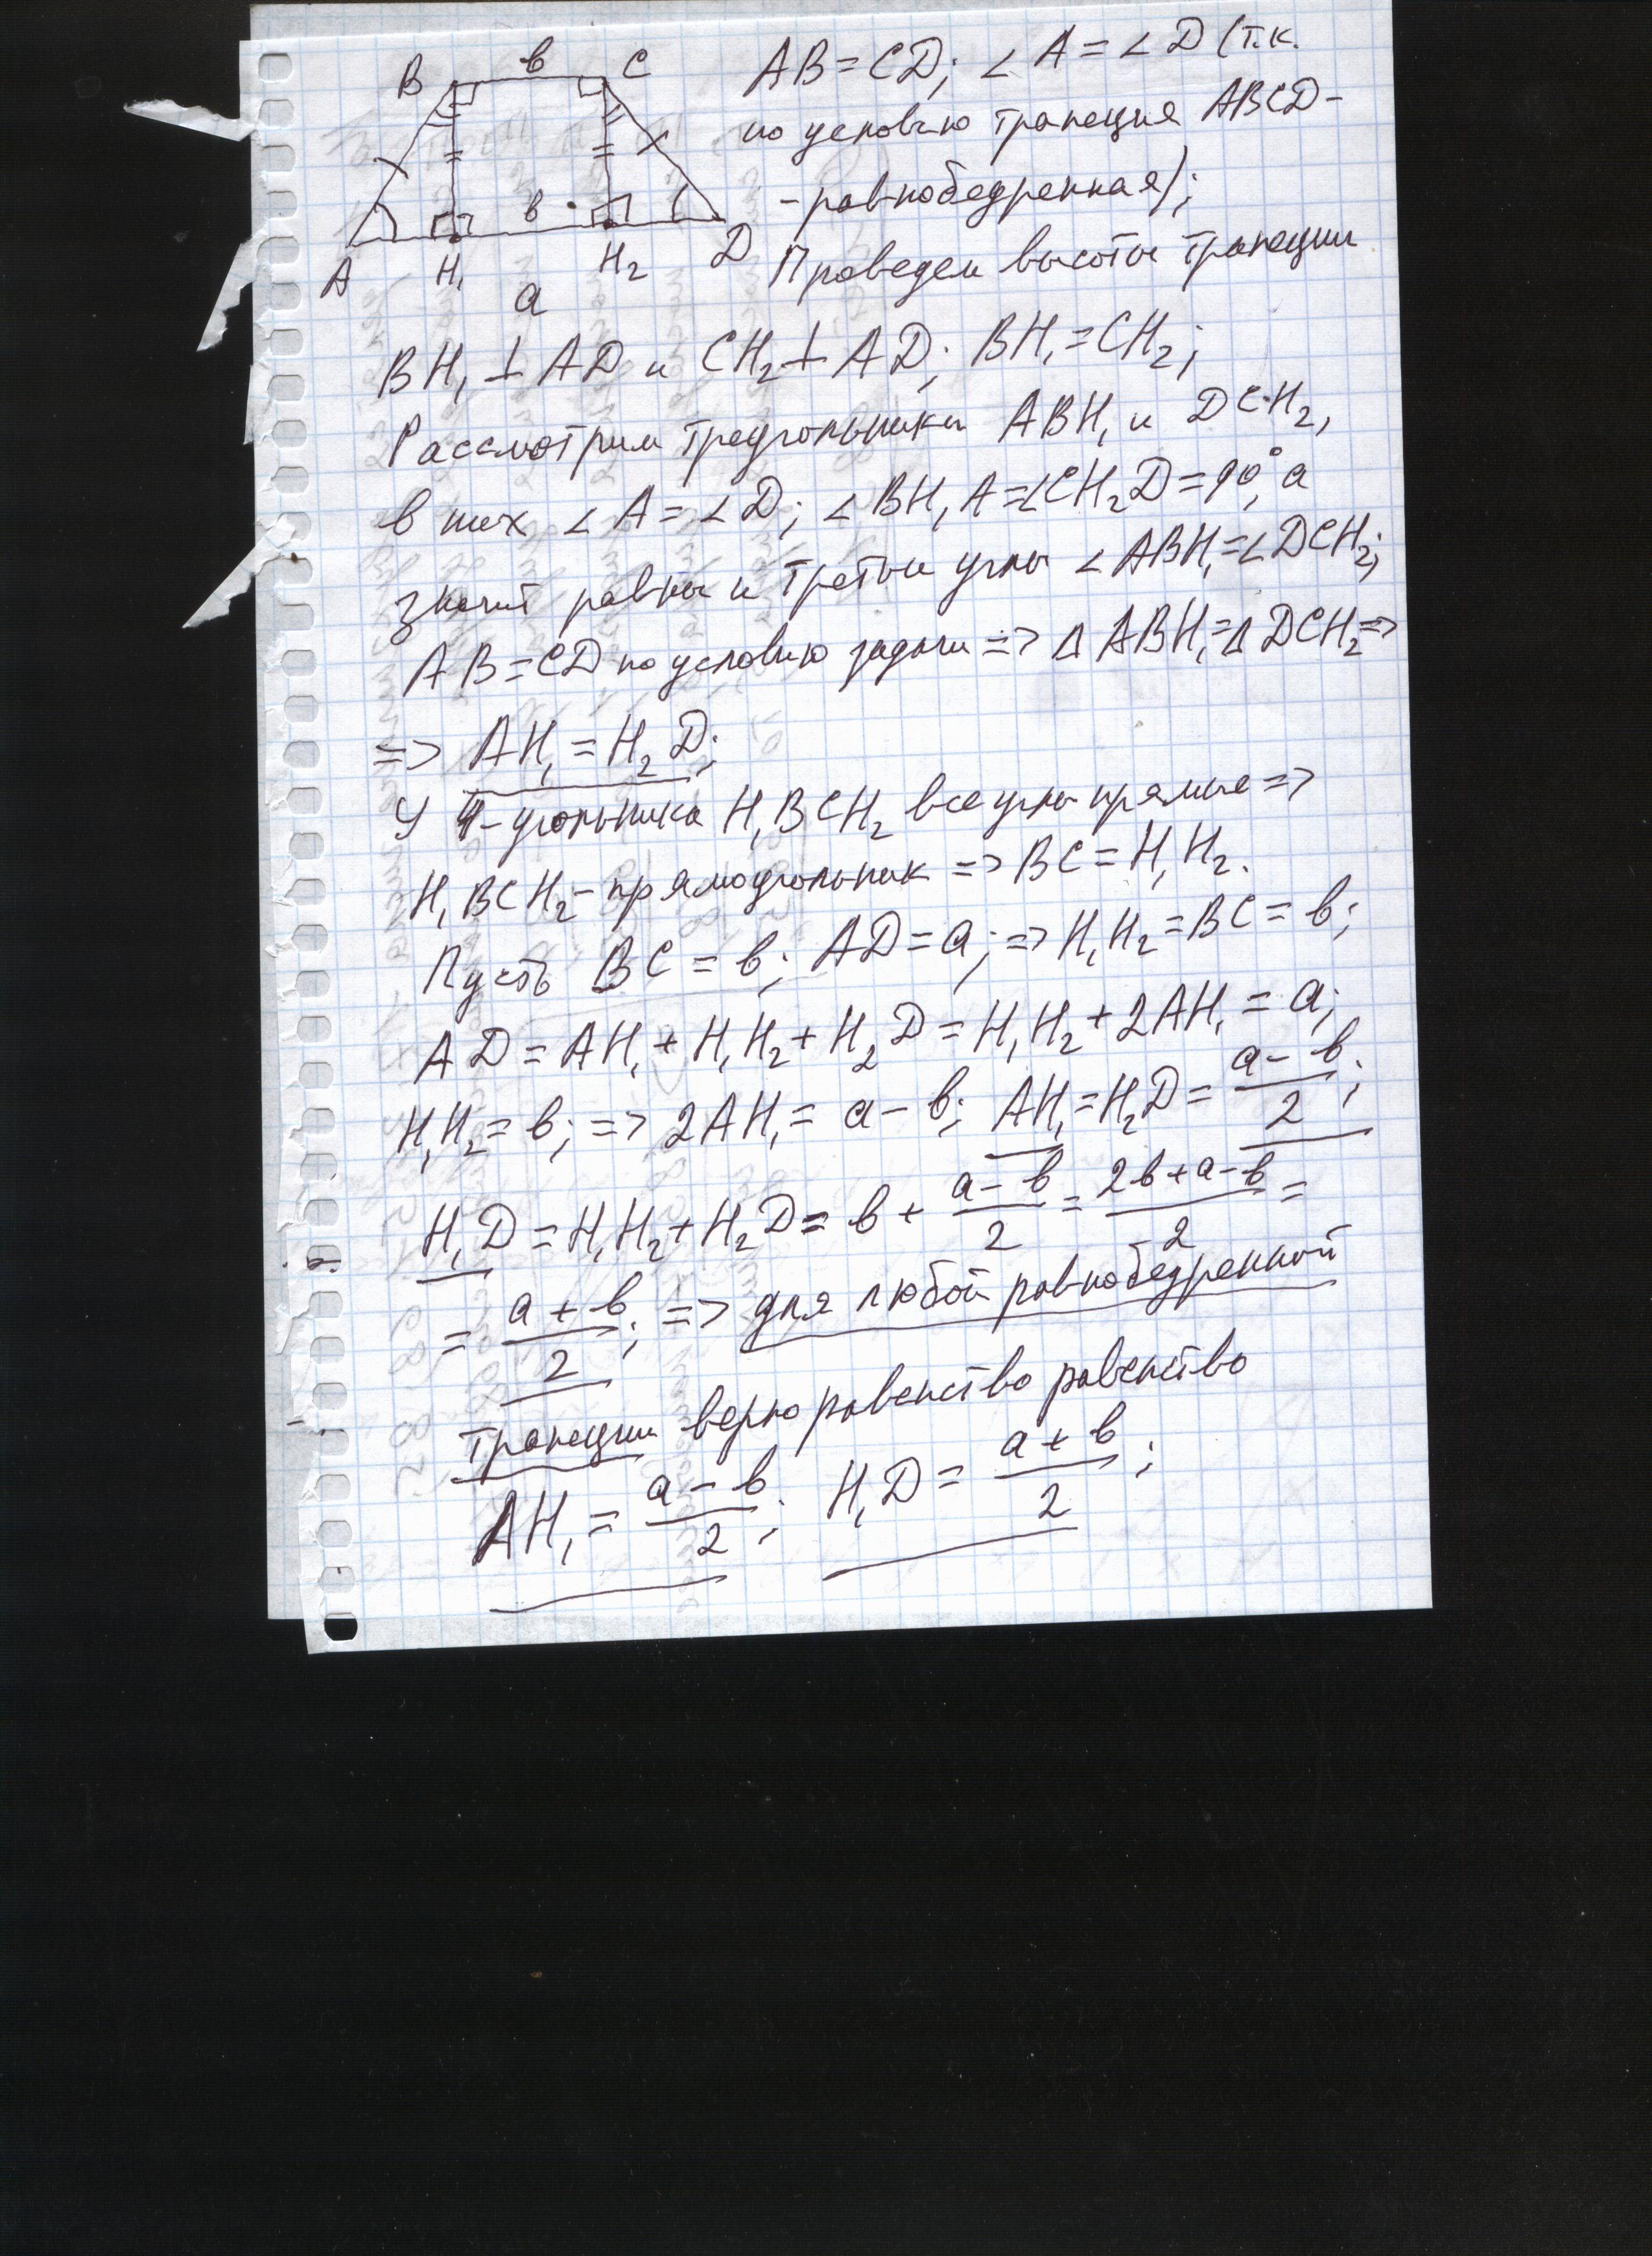 B в C
в
A H₁ H₂ D
a
AB = CD; ∠A = ∠D (т.к.
по условию трапеция ABCD -
- равнобедренная);
Проведем высоты трапеции
BH₁ ⊥ AD и CH₂ ⊥ AD; BH₁ = CH₂;
Рассмотрим треугольники ABH₁ и DCH₂,
в них ∠A = ∠D; ∠BH₁A = ∠CH₂D = 90°, а
значит равны и третьи углы ∠ABH₁ = ∠DCH₂;
AB = CD по условию задачи => Δ ABH₁ = Δ DCH₂ =>
=> AH₁ = H₂D;
У 4-угольника H₁BCH₂ все углы прямые =>
H₁BCH₂ - прямоугольник => BC = H₁H₂.
Пусть BC = в; AD = a; => H₁H₂ = BC = в;
AD = AH₁ + H₁H₂ + H₂D = H₁H₂ + 2AH₁ = a;
H₁H₂ = в; => 2AH₁ = a - в; AH₁ = H₂D = (a - в)/2;
H₁D = H₁H₂ + H₂D = в + (a - в)/2 = (2в + a - в)/2 =
= (a + в)/2; => для любой равнобедренной
трапеции верно равенство равенство
AH₁ = (a - в)/2; H₁D = (a + в)/2;